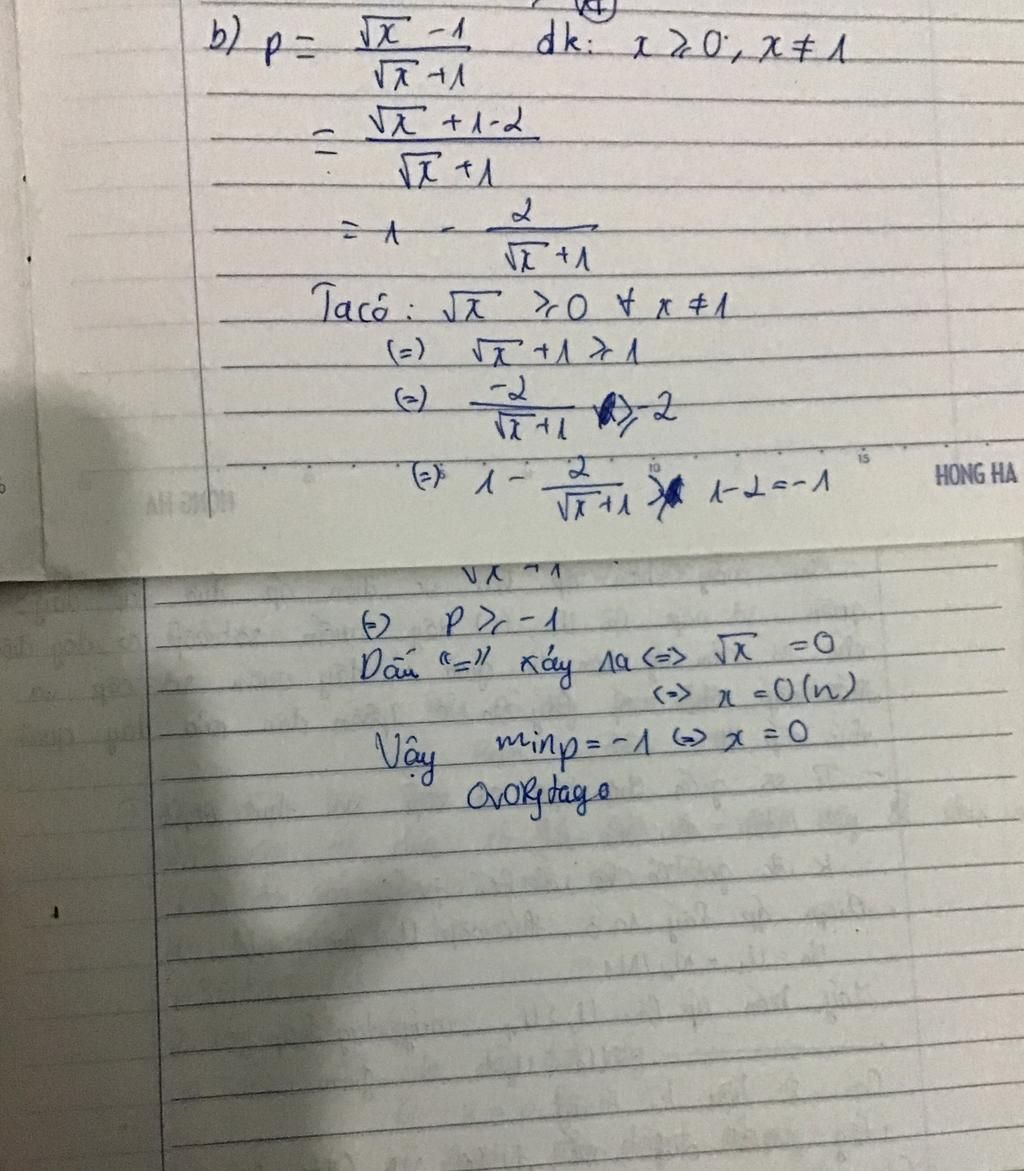 b) p = (√x - 1)/(√x + 1) dk: x ≥ 0, x ≠ 1
= (√x + 1 - 2)/(√x + 1)
= 1 - 2/(√x + 1)
Ta có: √x ≥ 0 ∀ x ≠ 1
(=) √x + 1 ≥ 1
(=) -2/(√x + 1) ≥ -2
(=) 1 - 2/(√x + 1) ≥ 1 - 2 = -1
10 15
HONG HA
√x + 1
(=) P ≥ -1
Dấu "=" xảy ra <=> √x = 0
<=> x = 0 (n)
Vậy min p = -1 <=> x = 0